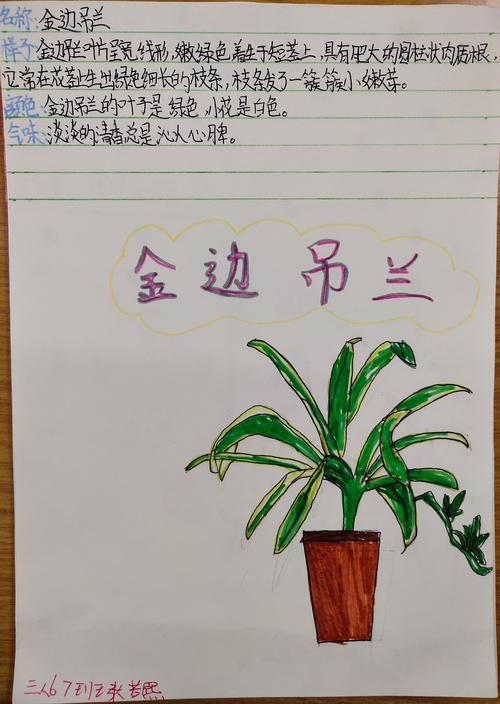 名称:金边吊兰
样子:金边吊兰叶片呈宽线形,嫩绿色着生于短茎上,具有肥大的圆柱状肉质根,
它常在花茎上生出绿色细长的枝条,枝条发了一簇簇小嫩芽。
颜色:金边吊兰的叶子是绿色,小花是白色。
气味:淡淡的清香总是沁人心脾。
金边吊兰
三(6)班